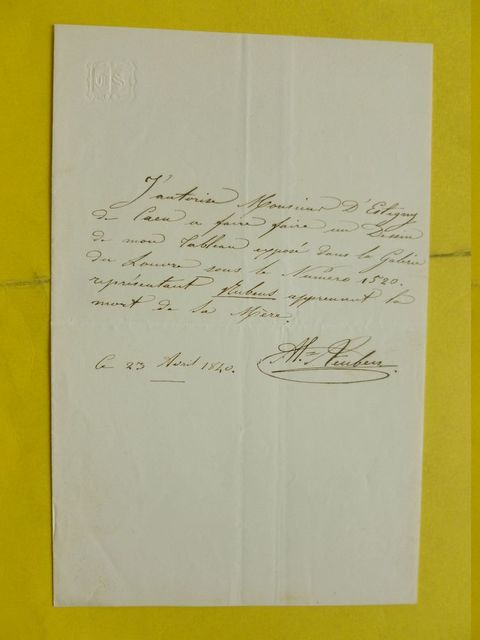 J'autorise Monsieur D'Estigny
de Caen a faire faire un Dessin
de mon Tableau exposé dans la Galerie
du Louvre sous le Numéro 1520.
représentant Rubens apprenant la
mort de sa Mère.
Ce 23 Avril 1840.